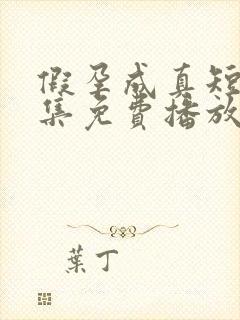 假孕成真短
集免費播放
葉丁